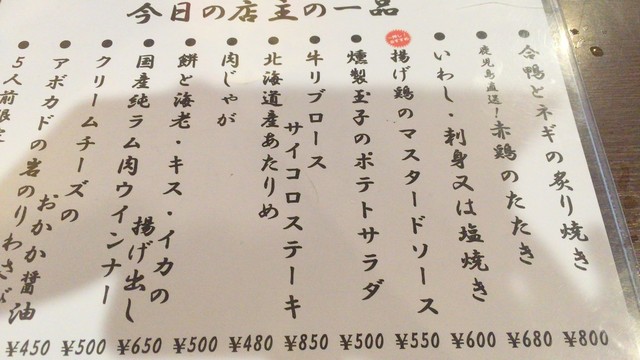 今日の店主の一品
合鴨とネギの炙り焼き
¥800
鹿児島直送!赤鶏のたたき
¥680
いわし・刺身又は塩焼き
¥600
揚げ鶏のマスタードソース
¥550
燻製玉子のポテトサラダ
¥500
牛リブロース
サイコロステーキ
¥850
北海道産あたりめ
¥480
肉じゃが
¥500
餅と海老・キス・イカの
揚げ出し
¥650
国産純ラム肉ウインナー
¥500
クリームチーズの
おかか醤油
¥450
アボカドの岩のりわさび
5人前限定